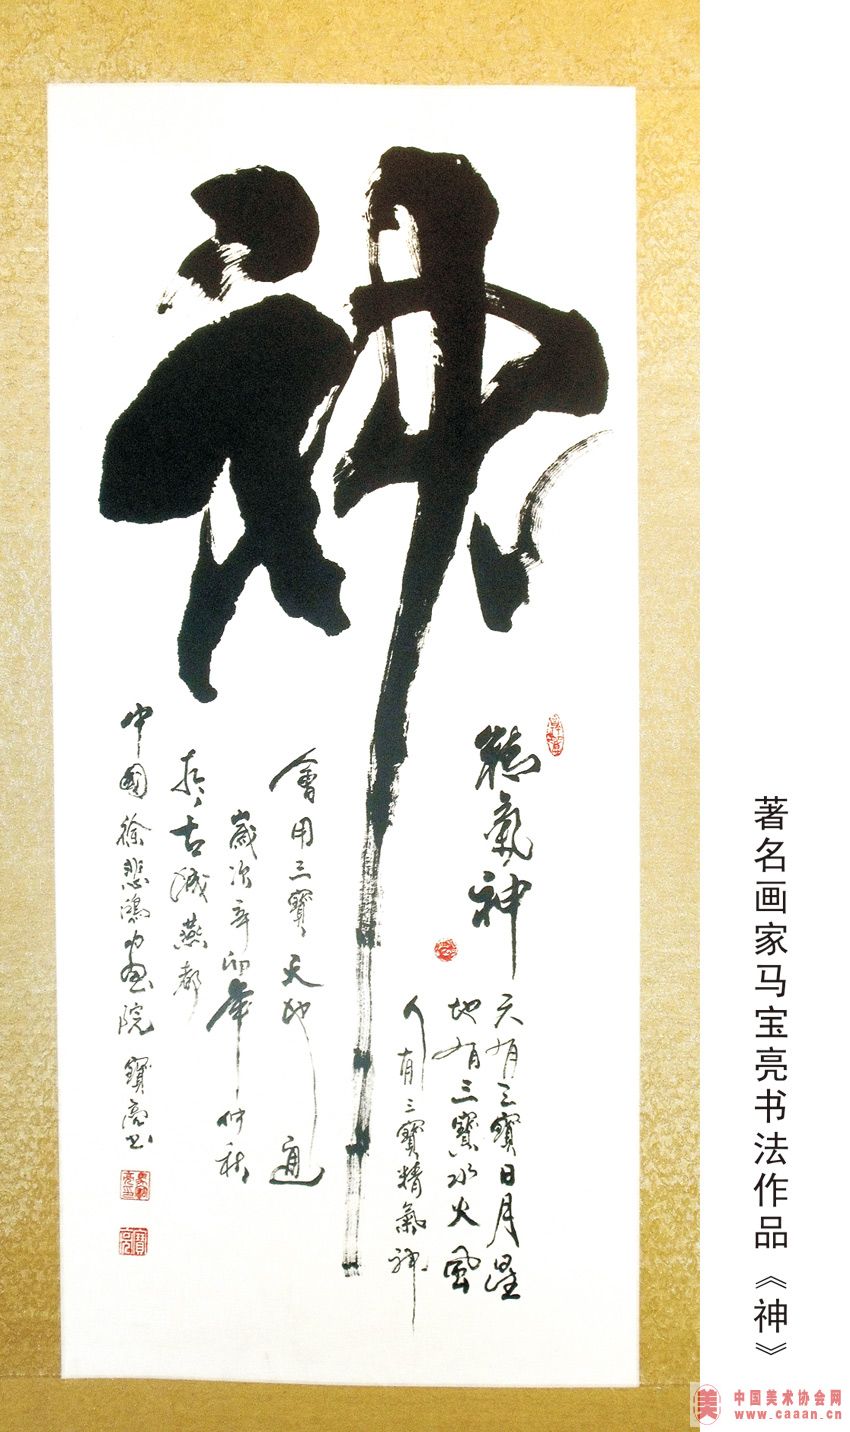 神
氣神
天有三寶日月星
地有三寶水火風
人有三寶精氣神
會用三寶天地通
歲次辛卯年仲秋
於古城燕都
中國徐悲鴻画院 寶亮书
著名画家马宝亮书法作品《神》
中国美术协会网
www.caaan.cn
美